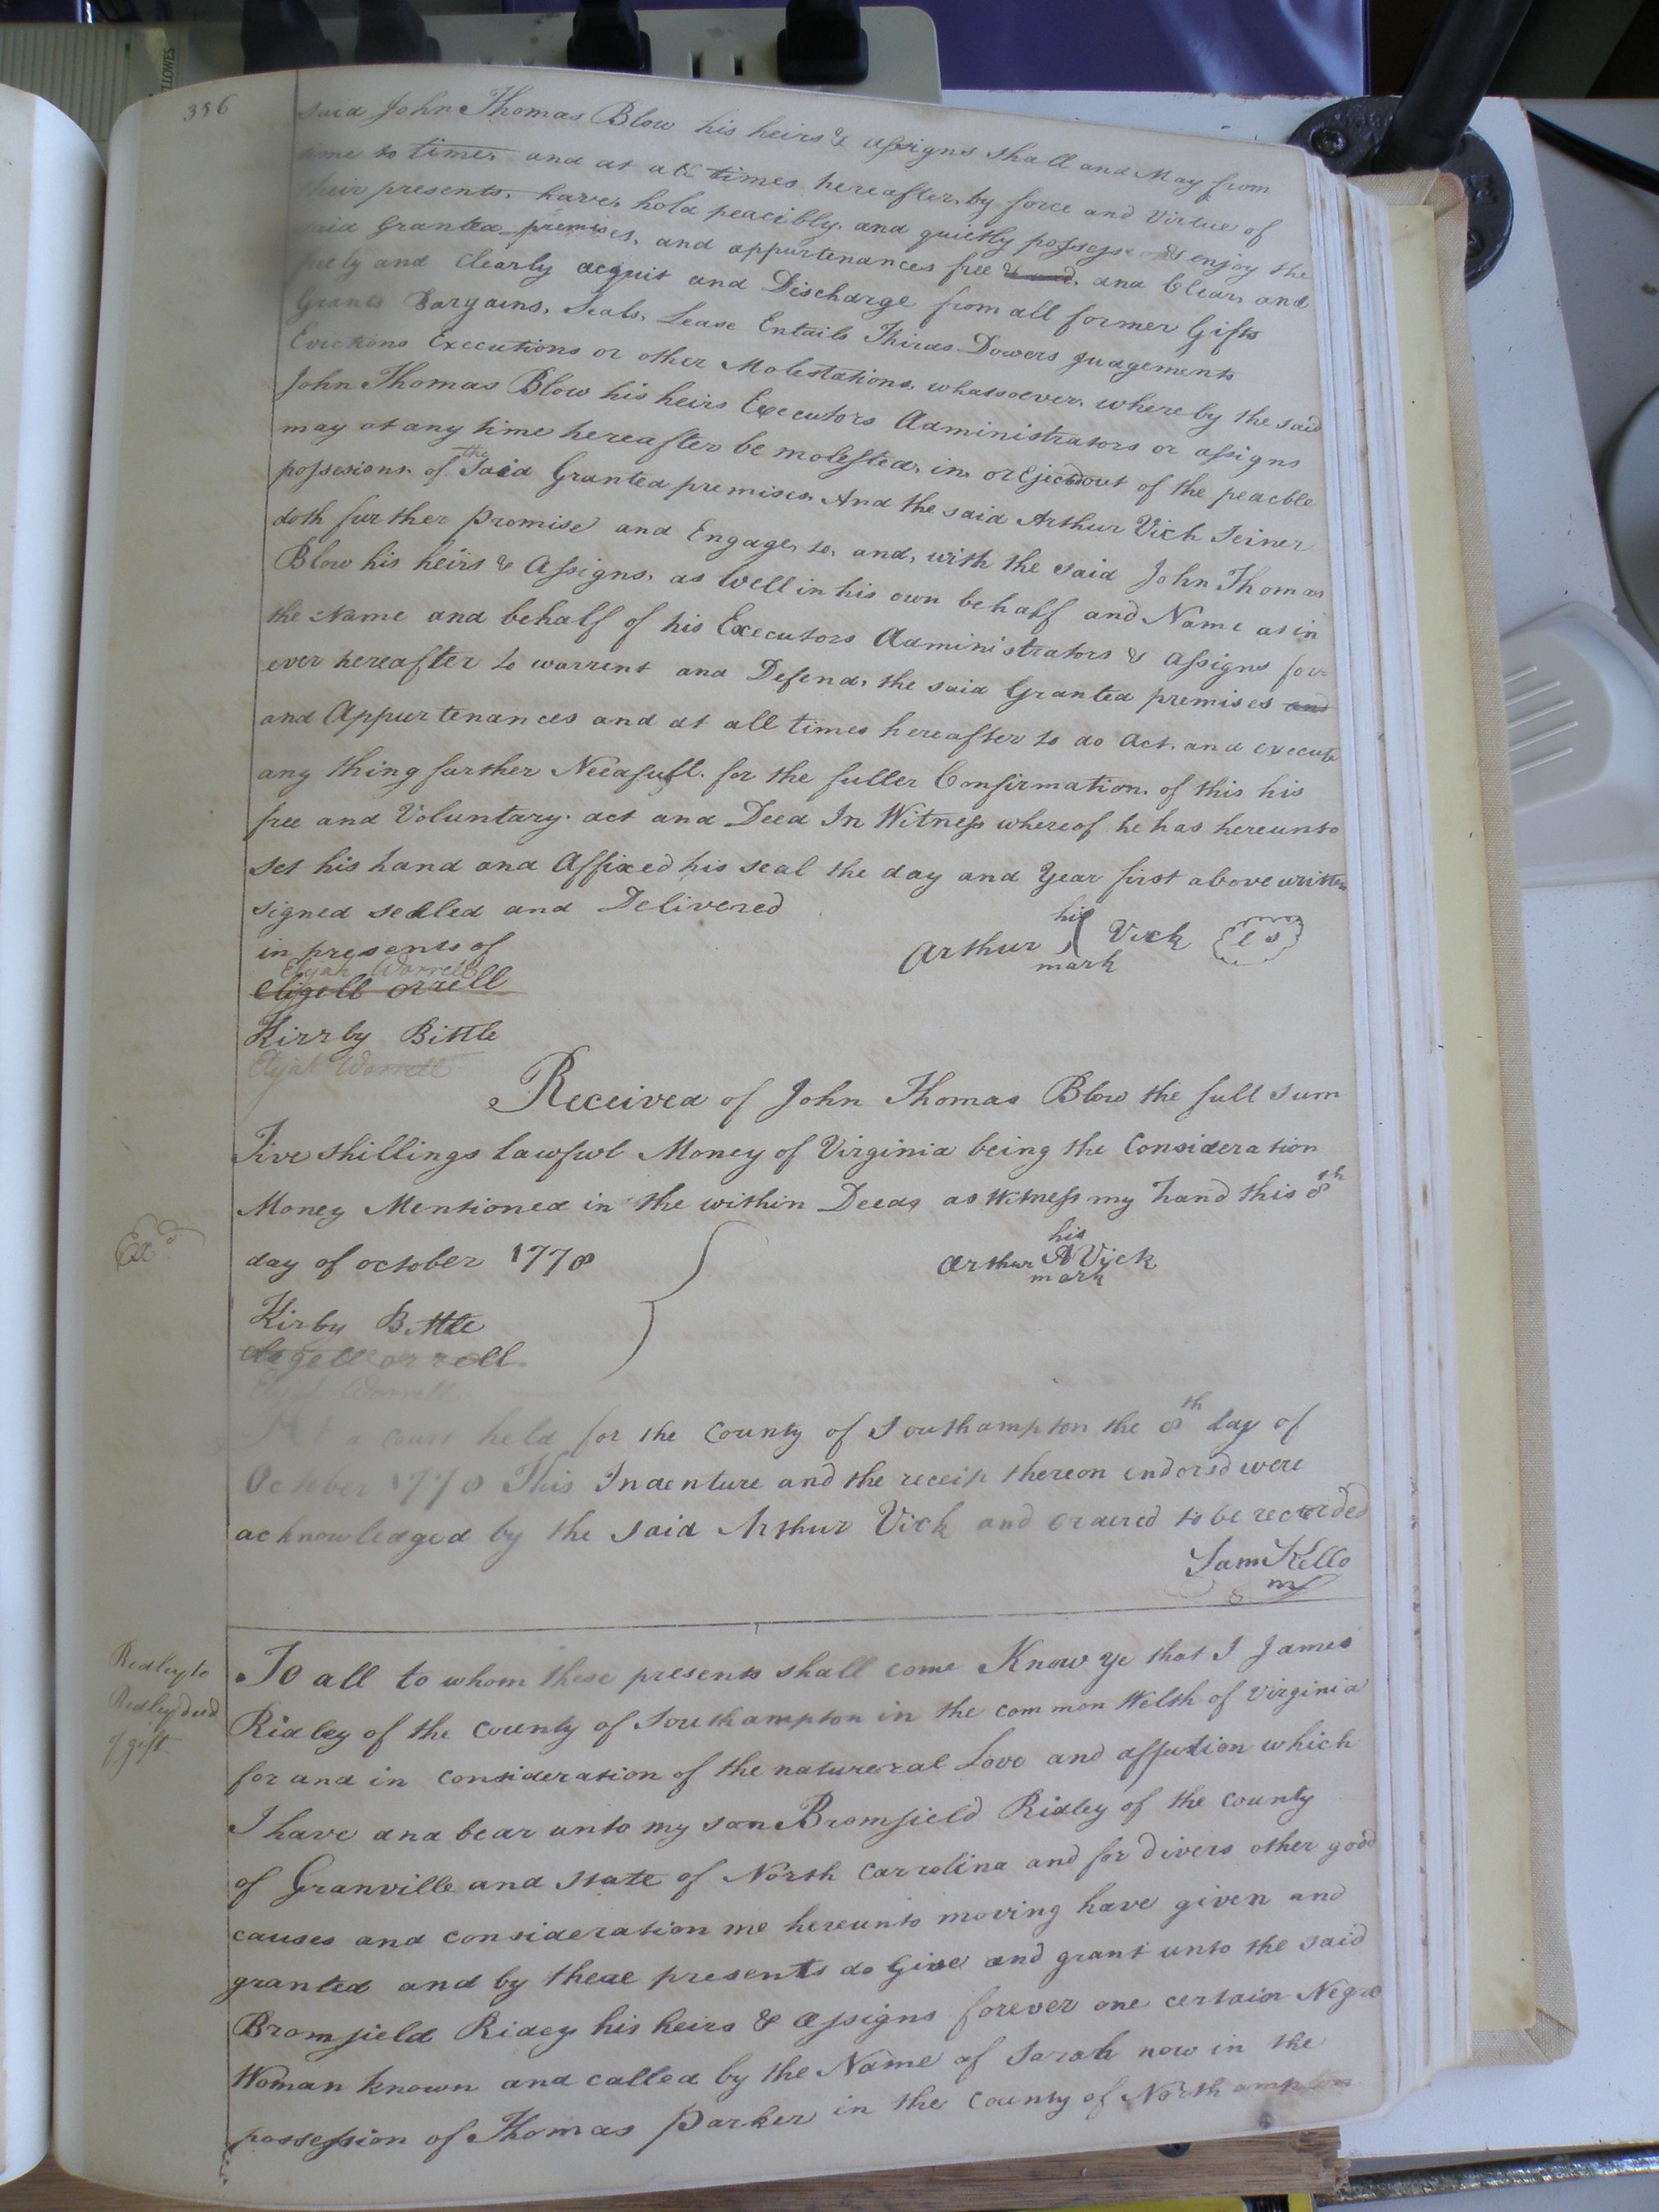 356
said John Thomas Blow his heirs & assigns shall and May from
time to times and at all times hereafter, by force and Virtue of
their presents, have, hold peacibly, and quietly possess and enjoy the
said Granted premises, and appurtenances free & and, and Clear, and
freely and Clearly acquit and Discharge from all former Gifts
Grants Bargains, Seals, Lease Entails Thirds Dowers Judgements
Evictions Executions or other Molestations, whatsoever, whereby the said
John Thomas Blow his heirs Executors Administrators or assigns
may at any time hereafter be molested, in, or Ejected out of the peacble
possesions of the Said Granted premises And the said Arthur Vick Seiner
doth further Promise and Engage, to, and, with the said John Thomas
Blow his heirs & Assigns, as Well in his own behalf and Name as in
the Name and behalf of his Executors Administrators & Assigns for
ever hereafter to warrent and Defend, the said Granted premises and
and Appurtenances and at all times hereafter to do Act, and execute
any thing further Needfull. for the fuller Confirmation, of this his
free and Voluntary. act and Deed In Witness whereof he has hereunto
set his hand and Affixed his seal the day and Year first above written
signed sealed and Delivered
in presents of
Arthur his mark Vick LS
Elijah Worrell
Eligell orrell
Kirrby Bittle
Elijah Worrell
Received of John Thomas Blow the full sum
Five Shillings Lawfwl Money of Virginia being the Consideration
Money Mentioned in the within Deed, as Witness my hand this 8th
Exd
day of october 1778
Arthur his A mark Vick
Kirby Bittle
Eligell orrell
Elijah Worrell
At a Court held for the County of Southampton the 8th day of
October 1778 This Indenture and the receipt thereon endorsd were
acknowledged by the said Arthur Vick and ordered to be recorded
Sam Kello
Ridley to
Ridley deed
of gift
To all to whom these presents shall come Know ye that I James
Ridley of the County of Southampton in the common Welth of Virginia
for and in Consideration of the natureral Love and affection which
I have and bear unto my son Bromfield Ridley of the County
of Granville and State of North Carrolina and for divers other good
causes and consideration me hereunto moving have given and
granted and by these presents do Give and grant unto the said
Bromfield Ridey his heirs & assigns forever one certain Negro
Woman known and called by the Name of Sarah now in the
possession of Thomas Parker in the County of Northampton